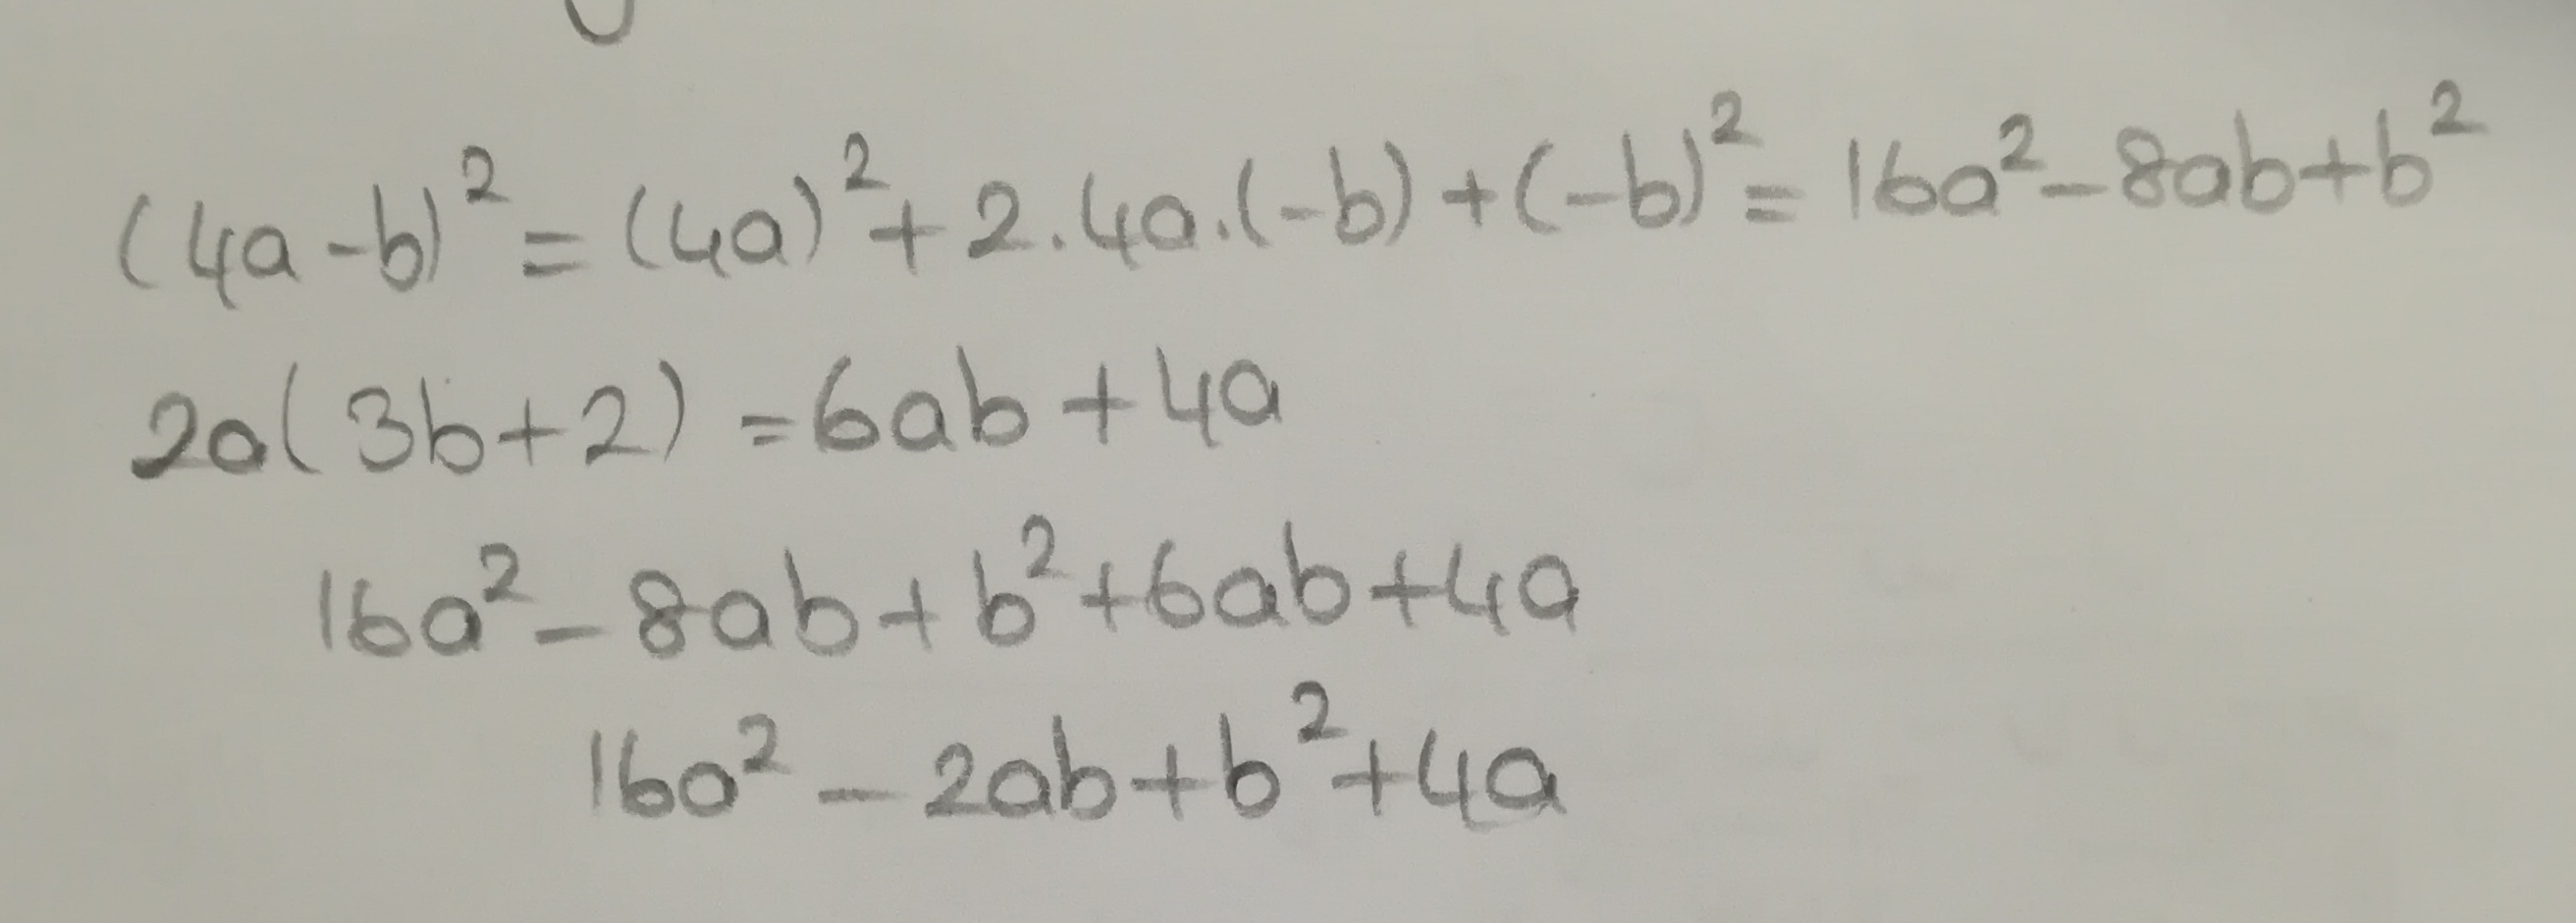 (4a-b)² = (4a)² + 2.4a.(-b) + (-b)² = 16a² - 8ab + b²
2a(3b+2) = 6ab + 4a
16a² - 8ab + b² + 6ab + 4a
16a² - 2ab + b² + 4a